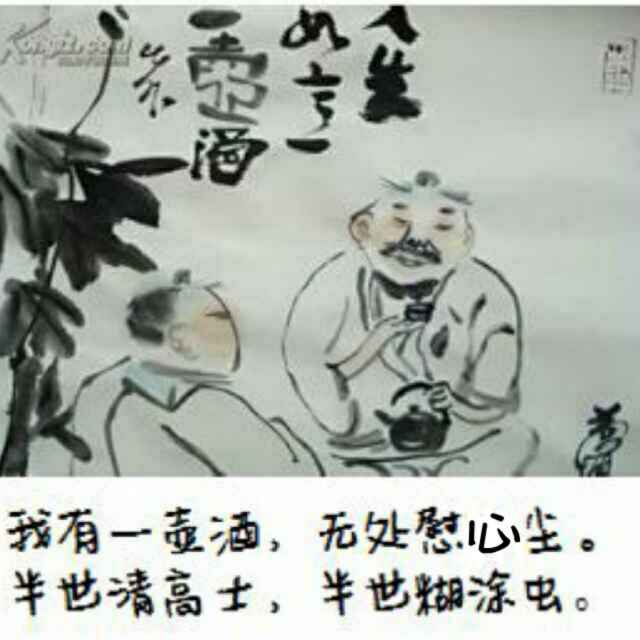 Kongfz.com
人生
一壶酒
我有一壶酒，无处慰心尘。
半世清高士，半世糊涂虫。